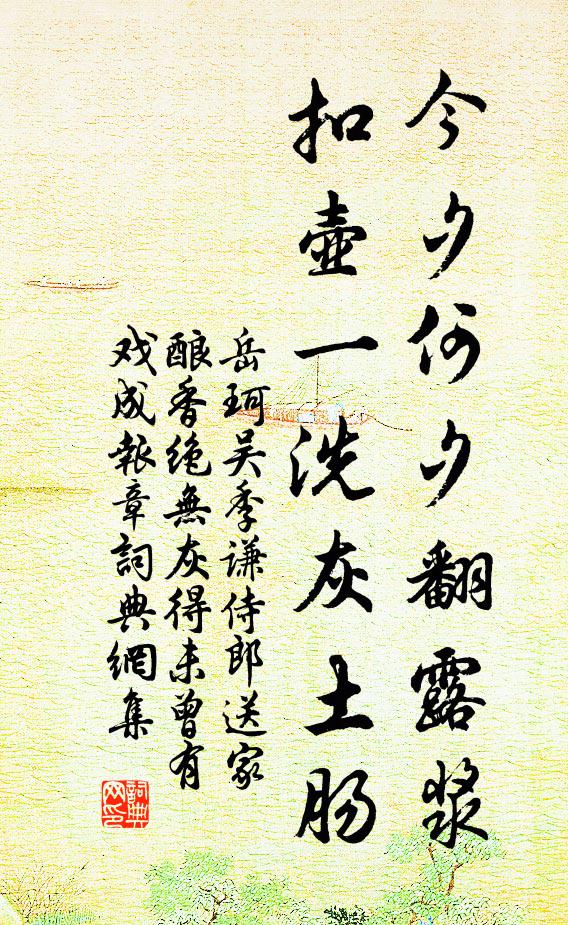 今夕何夕翻露浆
扣壶一洗灰土肠
岳珂吴季谦侍郎送家
酿香绝無灰得未曾有
戏成報章詞典網集
詞典
网印